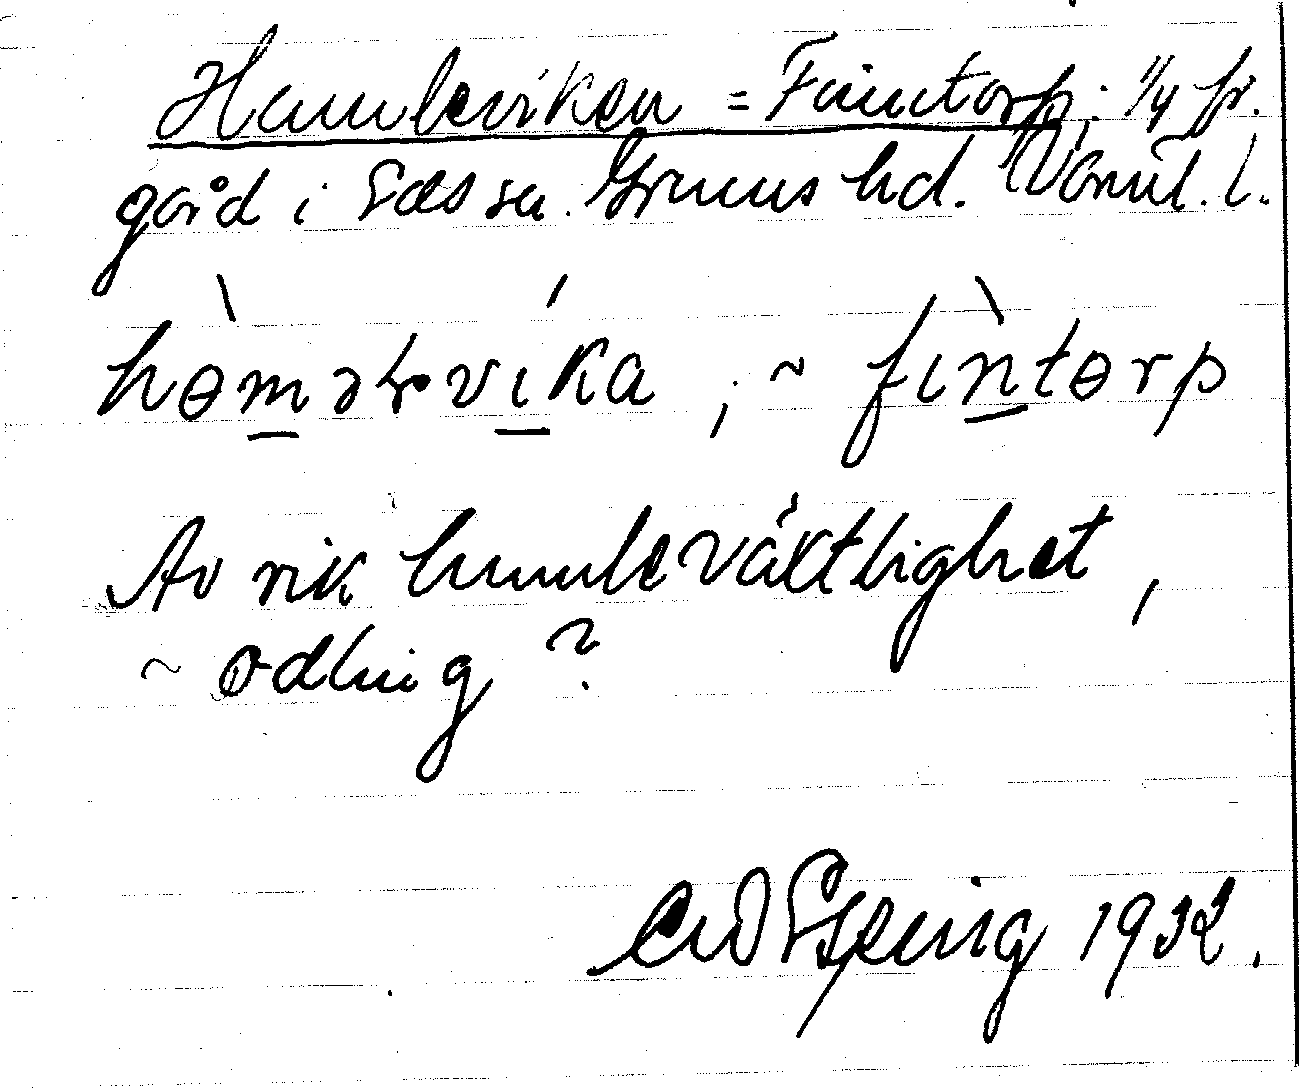 Humleviken = Finntorp: 1/4 fr.
gård i Ed s sn. Grums hd. Värml. l.
höməɽvìka, ~ fìntɵrp
Av rik humleväxtlighet,
~ odling?
CW Esping 1932.